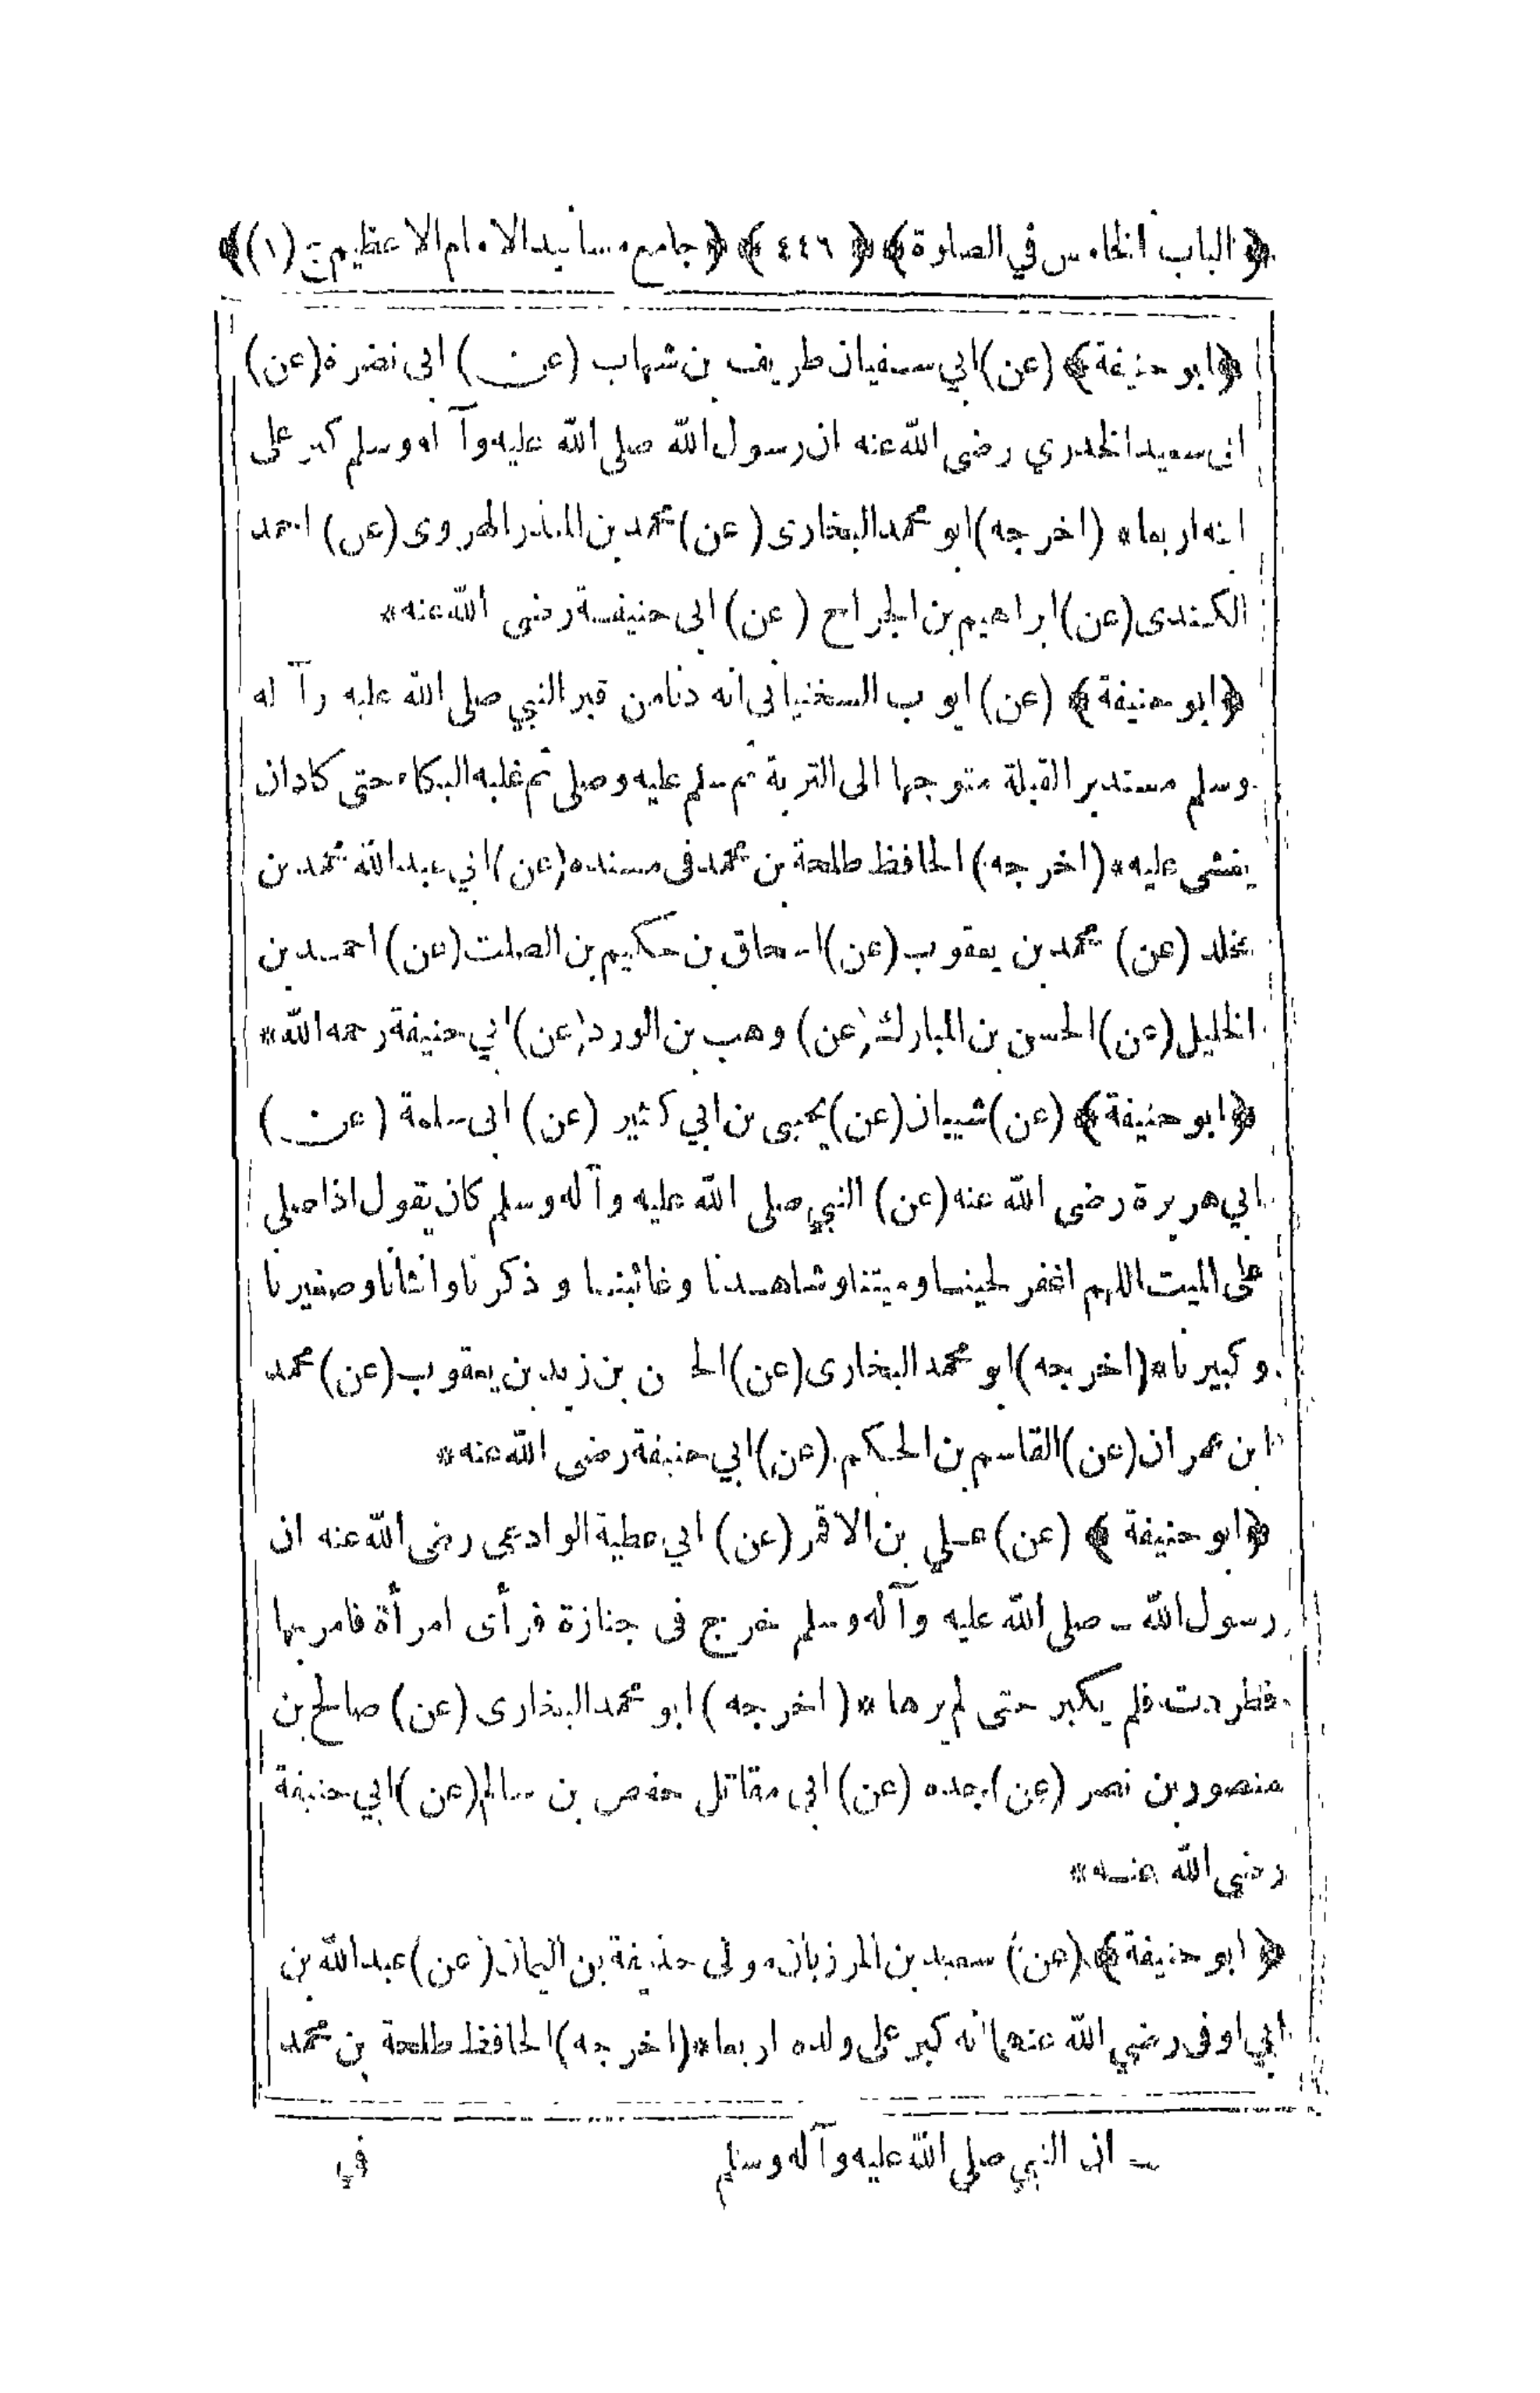 ﴿الباب الخامس في الصلوة﴾ ﴿٤٤٦﴾ ﴿جامع مسانيد الامام الاعظيم ج (١)﴾
﴿ابو حنيفة﴾ (عن) ابي سفيان طريف بن شهاب (عن) ابى نضرة (عن)
ابى سعيد الخدري رضى الله عنه ان رسول الله صلى الله عليه وآله وسلم كبر على
ابنه اربعا * (اخرجه) ابو محمد البخارى (عن) محمد بن المنذر الهروى (عن) احمد
الكندى (عن) ابراهيم بن الجراح (عن) ابى حنيفة رضى الله عنه *
﴿ابو حنيفة﴾ (عن) ايوب السختيانى انه دنا من قبر النبي صلى الله عليه وآله
وسلم مستدبر القبلة متوجها الى التربة ثم سلم عليه وصلى ثم غلبه البكاء حتى كاد ان
يغشى عليه * (اخرجه) الحافظ طلحة بن محمد فى مسنده (عن) ابي عبد الله محمد بن
مخلد (عن) محمد بن يعقوب (عن) اسحاق بن حكيم بن الصلت (عن) احمد بن
الخليل (عن) الحسن بن المبارك (عن) وهب بن الورد (عن) ابي حنيفة رحمه الله *
﴿ابو حنيفة﴾ (عن) شيبان (عن) يحيى بن ابي كثير (عن) ابى سلمة (عن)
ابي هريرة رضى الله عنه (عن) النبي صلى الله عليه وآله وسلم كان يقول اذا صلى
على الميت اللهم اغفر لحينا وميتنا وشاهدنا وغائبنا و ذكرنا وانثانا وصغيرنا
وكبيرنا * (اخرجه) ابو محمد البخارى (عن) الحسن بن زيد بن يعقوب (عن) محمد
ابن عمران (عن) القاسم بن الحكم (عن) ابي حنيفة رضى الله عنه *
﴿ابو حنيفة﴾ (عن) علي بن الاقمر (عن) ابي عطية الوادعى رضى الله عنه ان
رسول الله ــ صلى الله عليه وآله وسلم خرج فى جنازة فرأى امرأة فامر بها
فطردت فلم يكبر حتى لم يرها * (اخرجه) ابو محمد البخارى (عن) صالح بن
منصور بن نصر (عن) جده (عن) ابى مقاتل حفص بن سالم (عن) ابي حنيفة
رضي الله عنه *
﴿ابو حنيفة﴾ (عن) سعيد بن المرزبان مولى حذيفة بن اليمان (عن) عبد الله بن
ابي اوفى رضي الله عنهما انه كبر على ولده اربعا * (اخرجه) الحافظ طلحة بن محمد
ــ ان النبي صلى الله عليه وآله وسلم